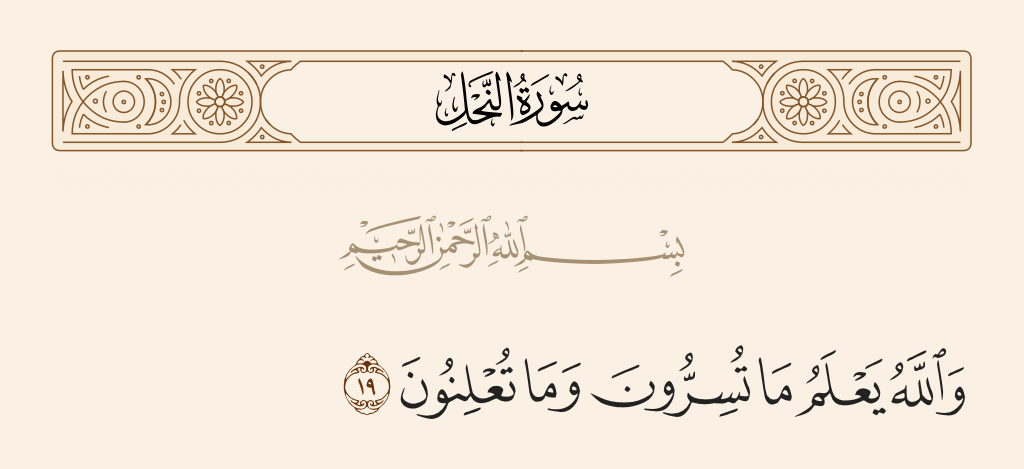 سُورَةُ النَّحْلِ
بِسْمِ ٱللَّهِ ٱلرَّحْمَٰنِ ٱلرَّحِيمِ
وَٱللَّهُ يَعْلَمُ مَا تُسِرُّونَ وَمَا تُعْلِنُونَ ١٩